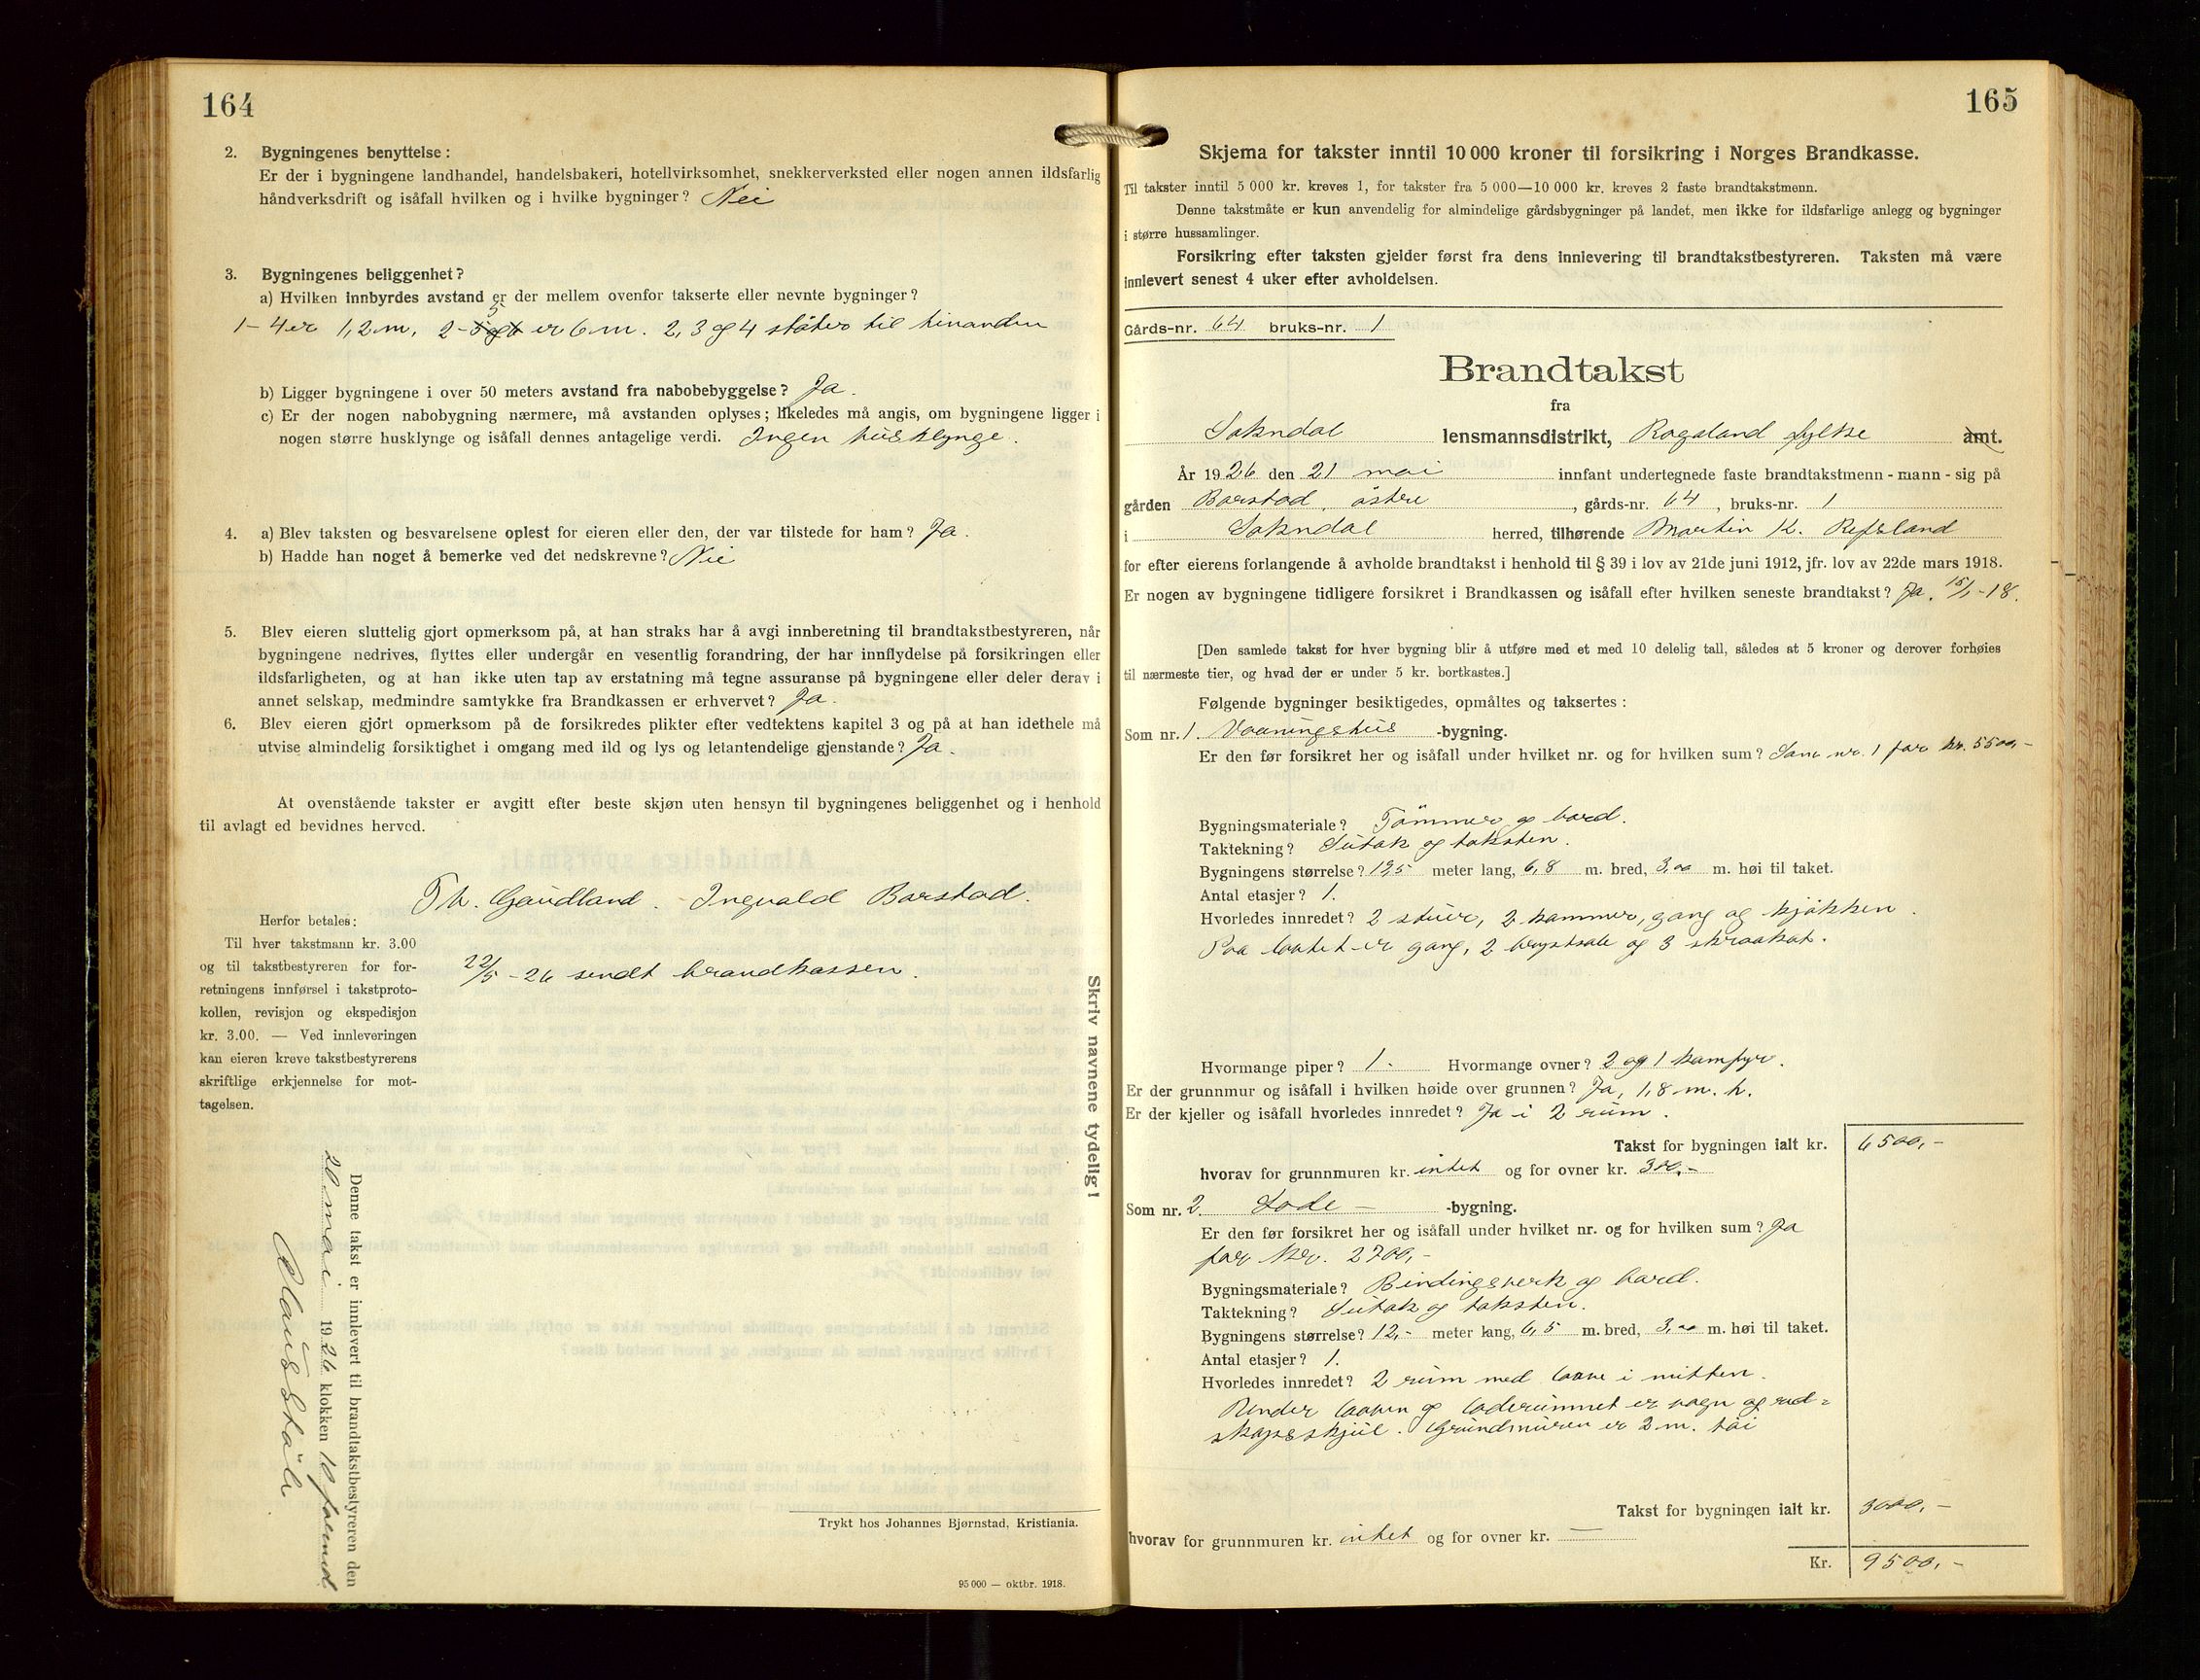 164
2. Bygningenes benyttelse:
Er der i bygningene landhandel, handelsbakeri, hotellvirksomhet, snekkerverksted eller nogen annen ildsfarlig
håndverksdrift og isåfall hvilken og i hvilke bygninger? Nei
3. Bygningenes beliggenhet?
a) Hvilken innbyrdes avstand er der mellem ovenfor takserte eller nevnte bygninger?
1-4 er 1,2 m, 2-5 er 6 m. 2, 3 og 4 støter til hinanden
b) Ligger bygningene i over 50 meters avstand fra nabobebyggelse? Ja.
c) Er der nogen nabobygning nærmere, må avstanden oplyses; likeledes må angis, om bygningene ligger i
nogen større husklynge og isåfall dennes antagelige verdi. Ingen husklynge.
4. a) Blev taksten og besvarelsene oplest for eieren eller den, der var tilstede for ham? Ja.
b) Hadde han noget å bemerke ved det nedskrevne? Nei
5. Blev eieren sluttelig gjort opmerksom på, at han straks har å avgi innberetning til brandtakstbestyreren, når
bygningene nedrives, flyttes eller undergår en vesentlig forandring, der har innflydelse på forsikringen eller
ildsfarligheten, og at han ikke uten tap av erstatning må tegne assuranse på bygningene eller deler derav i
annet selskap, medmindre samtykke fra Brandkassen er erhvervet? Ja.
6. Blev eieren gjort opmerksom på de forsikredes plikter efter vedtektens kapitel 3 og på at han idethele må
utvise almindelig forsiktighet i omgang med ild og lys og letantendelige gjenstande? Ja.
At ovenstående takster er avgitt efter beste skjøn uten hensyn til bygningenes beliggenhet og i henhold
til avlagt ed bevidnes herved.
Th. Gaudland. Ingvald Barstad.
Herfor betales:
Til hver takstmann kr. 3.00
og til takstbestyreren for for-
retningens innførsel i takstproto-
kollen, revisjon og ekspedisjon
kr. 3.00. — Ved innleveringen
kan eieren kreve takstbestyrerens
skriftlige erkjennelse for mot-
tagelsen.
22/5 - 26 sendt brandkassen.
Skriv navnene tydelig!
Denne takst er innlevert til brandtakstbestyreren den
mai 1926 klokken 10 formd.
Trykt hos Johannes Bjørnstad, Kristiania.
95 000 — oktbr. 1918.
165
Skjema for takster inntil 10 000 kroner til forsikring i Norges Brandkasse.
Til takster inntil 5 000 kr. kreves 1, for takster fra 5 000—10 000 kr. kreves 2 faste brandtakstmenn.
Denne takstmåte er kun anvendelig for almindelige gårdsbygninger på landet, men ikke for ildsfarlige anlegg og bygninger
i større hussamlinger.
Forsikring efter taksten gjelder først fra dens innlevering til brandtakstbestyreren. Taksten må være
innlevert senest 4 uker efter avholdelsen.
Gårds-nr. 64 bruks-nr. 1
Brandtakst
fra
Sokndal lensmannsdistrikt, Rogaland fylke amt.
År 1926 den 21 mai innfant undertegnede faste brandtakstmenn - mann - sig på
gården Barstad, østre, gårds-nr. 64, bruks-nr. 1
i Sokndal herred, tilhørende Martin K. Refsland
for efter eierens forlangende å avholde brandtakst i henhold til § 39 i lov av 21de juni 1912, jfr. lov av 22de mars 1918.
Er nogen av bygningene tidligere forsikret i Brandkassen og isåfall efter hvilken seneste brandtakst? Ja, 15/1-18.
[Den samlede takst for hver bygning blir å utføre med et med 10 delelig tall, således at 5 kroner og derover forhøies
til nærmeste tier, og hvad der er under 5 kr. bortkastes.]
Følgende bygninger besiktigedes, opmåltes og taksertes:
Som nr. 1. Vaaningshus -bygning.
Er den før forsikret her og isåfall under hvilket nr. og for hvilken sum? Som nr. 1 for kr. 5500,-
Bygningsmateriale? Tømmer og bord.
Taktekning? Sutak og taksten.
Bygningens størrelse? 13,5 meter lang, 6,8 m. bred, 3,00 m. høi til taket.
Antal etasjer? 1.
Hvorledes innredet? 2 stuer, 2 kammer, gang og kjøkken.
Paa loftet er gang, 2 brystsale og 3 skraakot.
Hvormange piper? 1. Hvormange ovner? 2 og 1 komfyr.
Er der grunnmur og isåfall i hvilken høide over grunnen? Ja, 1,8 m. h.
Er der kjeller og isåfall hvorledes innredet? Ja i 2 rum.
Takst for bygningen ialt kr. 6500,-
hvorav for grunnmuren kr. intet og for ovner kr. 300,-
Som nr. 2. Lode -bygning.
Er den før forsikret her og isåfall under hvilket nr. og for hvilken sum? Ja
for kr. 2700,-
Bygningsmateriale? Bindingsverk og bord.
Taktekning? Sutak og taksten.
Bygningens størrelse? 12,- meter lang, 6,5 m. bred, 3,00 m. høi til taket.
Antal etasjer? 1.
Hvorledes innredet? 2 rum med laave i mitten.
Under laaven og loderummet er vogn og red-
skapsskjul. Grundmuren er 2 m. høi
Takst for bygningen ialt kr. 3000,-
hvorav for grunnmuren kr. intet og for ovner kr. —
Kr. 9500,-